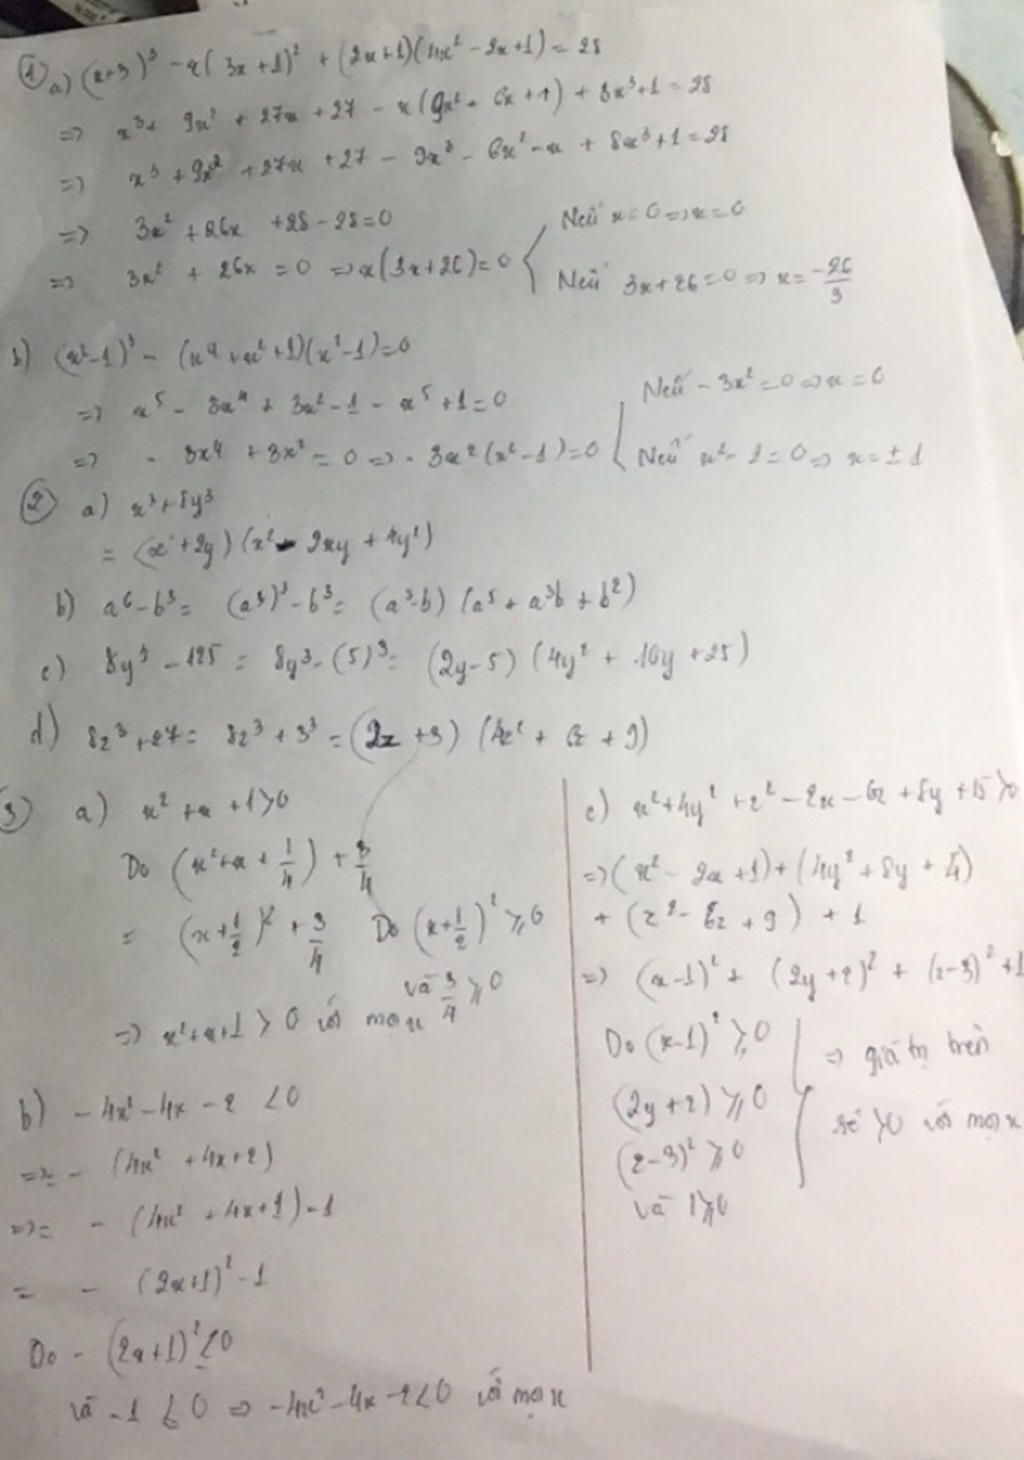 ① a) (x+3)³ - x(3x+1)² + (2x+1)(4x² - 2x+1) = 28
=> x³ + 9x² + 27x + 27 - x(9x² + 6x + 1) + 8x³+1 = 28
=> x³ + 9x² + 27x + 27 - 9x³ - 6x² - x + 8x³ + 1 = 28
=> 3x² + 26x + 28 - 28 = 0
Nếu x = 0 => x = 0
=> 3x² + 26x = 0 => x(3x+26) = 0
Nếu 3x + 26 = 0 => x = -26/3
b) (x²-1)³ - (x⁴ + x² + 1)(x²-1) = 0
=> x⁵ - 3x⁴ + 3x² - 1 - x⁵ + 1 = 0
Nếu - 3x² = 0 => x = 0
=> - 3x⁴ + 3x² = 0 => - 3x²(x²-1) = 0
Nếu x² - 1 = 0 => x = ± 1
② a) x³ + 8y³
= (x + 2y)(x² - 2xy + 4y²)
b) a⁶ - b³ = (a²)³ - b³ = (a²-b)(a⁵ + a²b + b²)
c) 8y³ - 125 = 8y³ - (5)³ = (2y-5)(4y² + 10y + 25)
d) 8z³ + 27 = 8z³ + 3³ = (2z + 3)(4z² + 6z + 9)
③ a) x² + x + 1 > 0
Do (x² + x + 1/4) + 3/4
= (x + 1/2)² + 3/4 Do (x + 1/2)² ⩾ 0
và 3/4 ⩾ 0
=> x² + x + 1 > 0 với mọi x
b) - 4x² - 4x - 2 < 0
=> = - (4x² + 4x + 2)
=> = - (4x² + 4x + 1) - 1
= - (2x+1)² - 1
Do - (2x+1)² ≤ 0
và - 1 ≤ 0 => - 4x² - 4x - 2 < 0 với mọi x
c) x² + 4y² + z² - 2x - 6z + 8y + 15 > 0
=> (x² - 2x + 1) + (4y² + 8y + 4)
+ (z² - 6z + 9) + 1
=> (x-1)² + (2y+2)² + (z-3)² + 1
Do (x-1)² ⩾ 0
(2y+2) ⩾ 0
(z-3)² ⩾ 0
và 1 ⩾ 0
=> giá trị trên
sẽ > 0 với mọi x